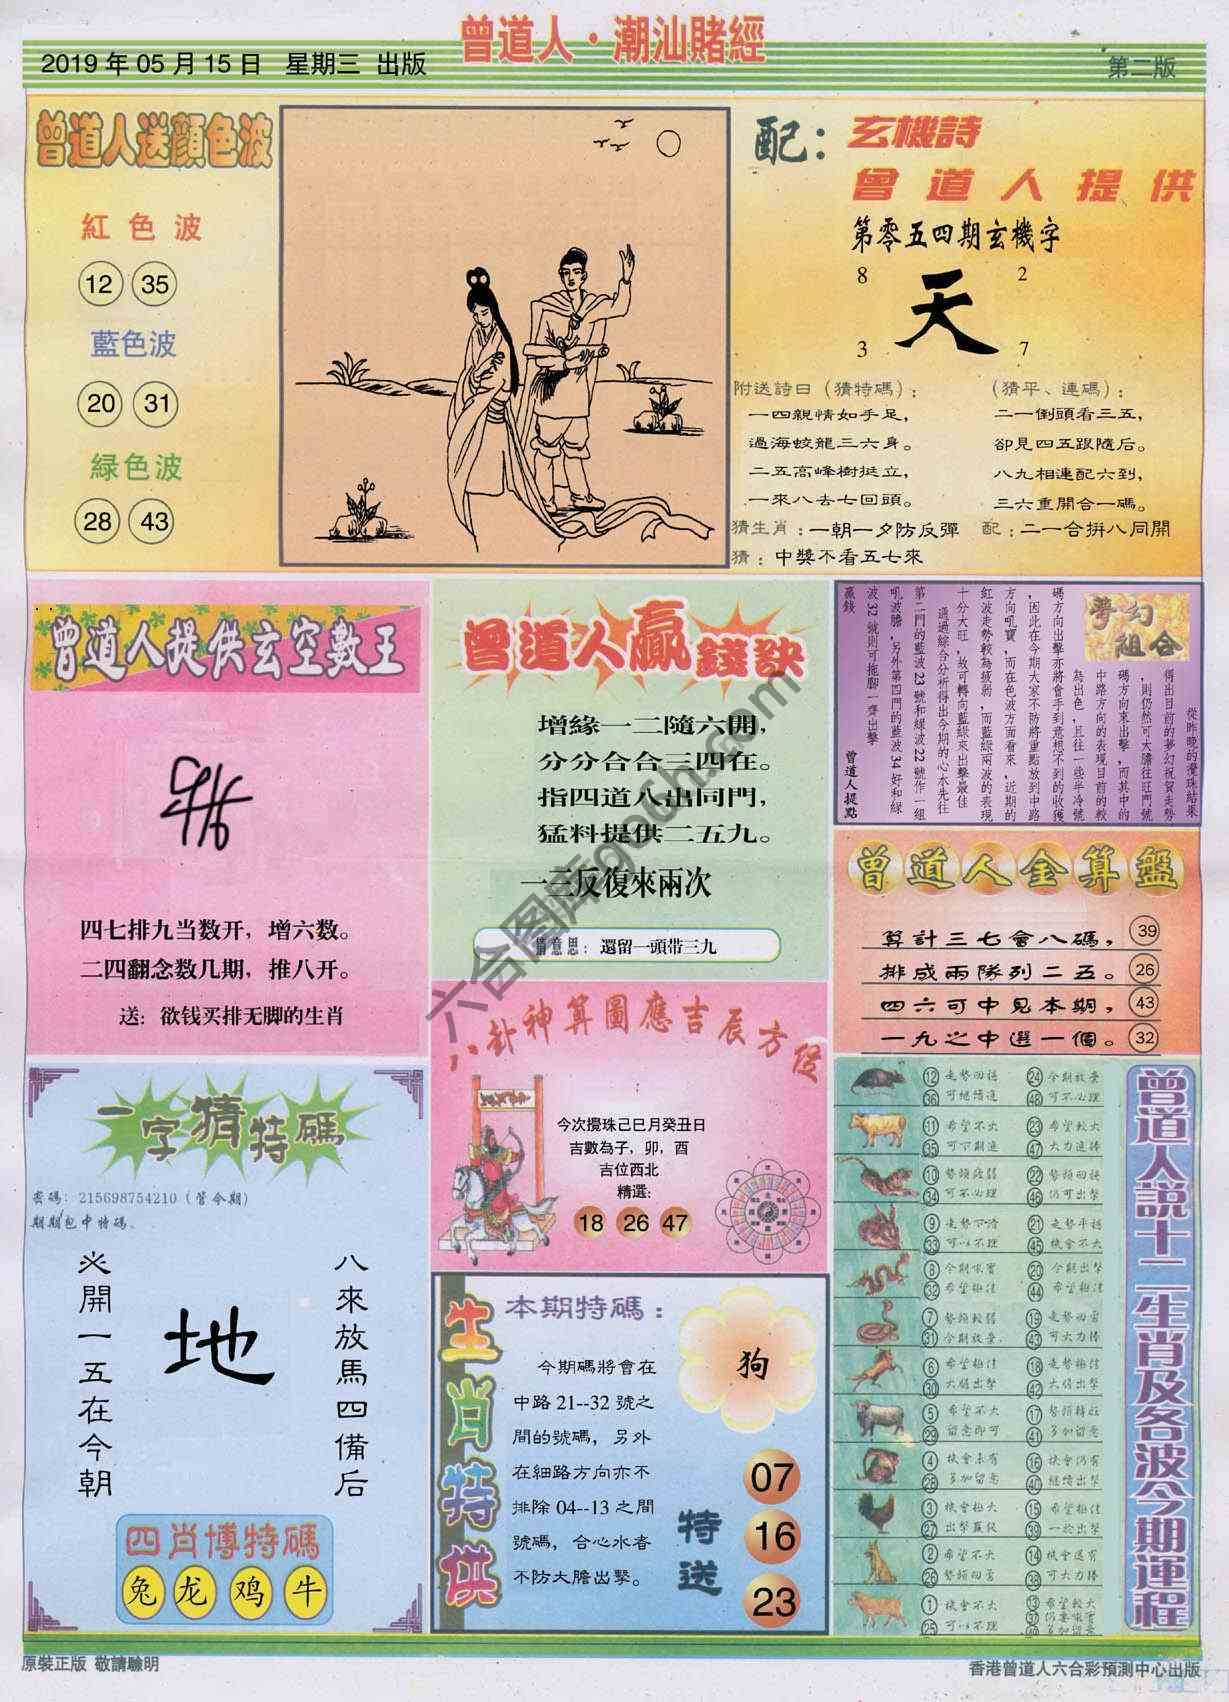 曾道人·潮汕賭經
2019 年 05 月 15 日 星期三 出版
第二版
曾道人送顔色波
紅色波
12 35
藍色波
20 31
緑色波
28 43
配：
玄機詩
曾道人提供
第零五四期玄機字
8 2
天
3 7
附送詩曰（猜特碼）：
一四親情如手足，
過海蛟龍三六身。
二五高峰樹挺立，
一來八去七回頭。
（猜平、連碼）：
二一倒頭看三五，
卻見四五跟隨后。
八九相連配六到，
三六重開合一碼。
猜生肖：一朝一夕防反彈
配：二一合拚八同開
猜：中獎不看五七來
曾道人提供玄空數王
四七排九当数开，增六数。
二四翻念数几期，推八开。
送：欲钱买排无脚的生肖
曾道人贏錢訣
增緣一二隨六開，
分分合合三四在。
指四道八出同門，
猛料提供二五九。
一三反復來兩次
猜意思：還留一頭带三九
夢幻組合
從昨晚的攪珠結果
得出目前的夢幻祝賀走勢
，則仍然可大膽往旺門號
碼方向來出擊，而其中的
中路方向的表現目前的較
為出色，且往一些半冷號
碼方向出擊亦將會手到意想不到的收獲
，因此在今期大家不防將重點放到中路
方向吼寶，而在色波方面看來，近期的
紅波走勢較為疲弱，而藍綠兩波的表現
十分大旺，故可轉向藍綠來出擊最佳
通過綜合分析得出今期的心水先往
第二門的藍波 23 號和綠波 22 號作一組
吼波膽，另外第四門的藍波 34 好和綠
波 32 號則可拖腳一齊出擊
贏錢
曾道人提點
曾道人金算盤
算計三七會八碼， 39
排成兩隊列二五。 26
四六可中見本期， 43
一九之中選一個。 32
八卦神算圖應吉辰方位
今次攪珠己巳月癸丑日
吉數為子，卯，酉
吉位西北
精選：
18 26 47
一字猜特碼
密碼：215698754210（管今期）
期期包中特碼。
八來放馬四備后
地
必開一五在今朝
四肖博特碼
兔 龙 鸡 牛
生肖特供
本期特碼：
今期碼將會在
中路 21--32 號之
間的號碼，另外
在細路方向亦不
排除 04--13 之間
號碼，合心水者
不防大膽出擊。
狗
特送
07
16
23
曾道人説十二生肖及各波今期運程
12 走勢回穩 24 今期放棄
36 可繼續追 48 可不必理
11 希望不大 23 希望較大
35 可下期追 47 大力追捧
10 勢頭疲弱 22 勢頭回穩
34 可不必理 46 仍可出擊
9 走勢下滑 21 走勢平穩
33 可以不理 45 機會不大
8 今期吼寶 20 今期出擊
32 希望極佳 44 希望極佳
7 勢頭較弱 19 走勢回弱
31 今期放棄 43 可大力捧
6 希望極佳 18 走勢極佳
30 大膽出擊 42 大膽出擊
5 希望不大 17 勢頭轉旺
29 留意即可 41 多加留意
4 機會未有 16 機會仍有
28 多加留意 40 繼續出擊
3 機會極大 15 希望極佳
27 39 一於出擊
2 希望不大 14 機會還有
26 38 可大力捧
1 機會不大 13 希望較大
25 可以不理 37
49 多加留意
原裝正版 敬請驗明
香港曾道人六合彩預測中心出版
六合图库gaochi.com